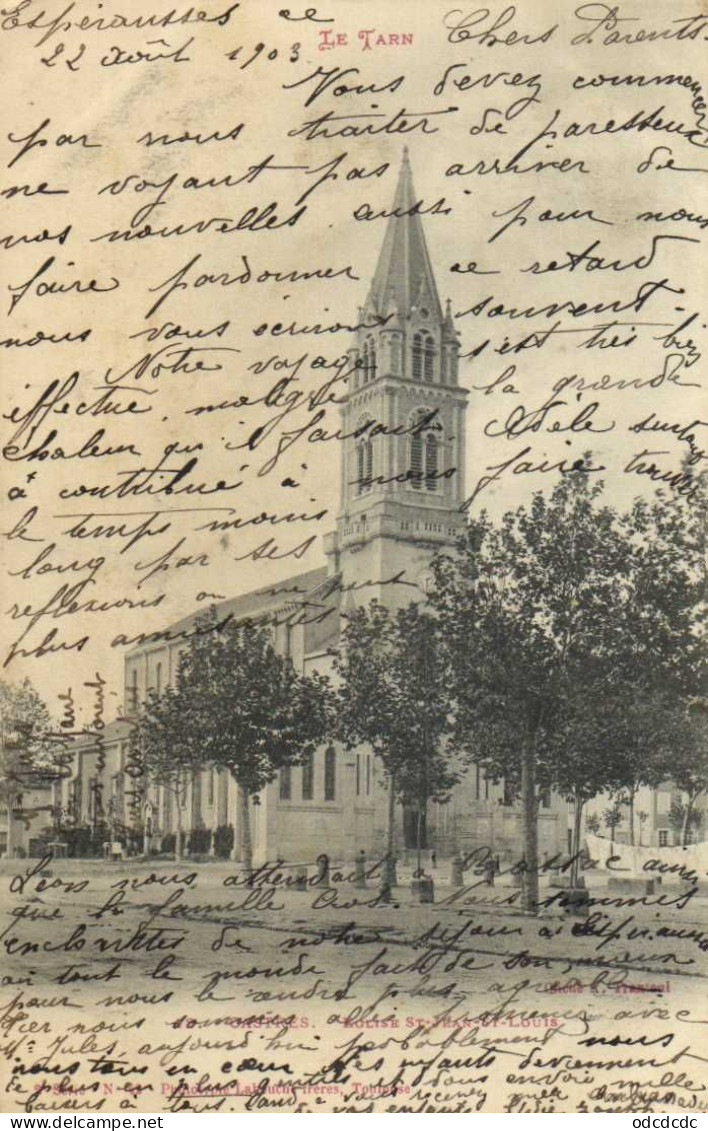 Espérausses le
22 Août 1903
LE TARN
Chers Parents.
Vous devez commencer
par nous traiter de paresseux
ne voyant pas arriver de
nos nouvelles aussi pour nous
faire pardonner ce retard
nous vous écrirons souvent.
Notre voyage s'est très bien
effectué malgré la grande
chaleur qu'il faisait. Adèle surtout
a contribué à nous faire trouver
le temps moins
long par ses
réflexions on ne peut
plus amusantes
Léon nous attendait à Brassac ainsi
que la famille Cros. Nous sommes
enchantés de notre séjour à Espérausses
où tout le monde fait de son mieux
pour nous le rendre plus agréable
Hier nous sommes allés promenés avec
Mr Jules, aujourd'hui probablement nous
CASTRES. - EGLISE ST-JEAN-ST-LOUIS
nous tous en cœur Les enfants deviennent
de plus en plus
Labouche frères, Toulouse
vous envoie mille
baisers à tous.
de vos enfants